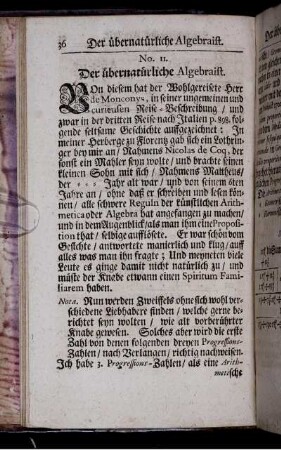 36 Der übernatürliche Algebraist.
No. 11.
Der übernatürliche Algebraist.
VOn diesem hat der Wohlgereiste Herr
de Monconys, in seiner ungemeinen und
curieusen Reise-Beschreibung / und
zwar in der dritten Reise nach Italien p. 898. folgende
seltzame Geschichte auffgezeichnet: In
meiner Herberge zu Florentz gab sich ein Lothringer
bey mir an / Nahmens Nicolas de Coq, der
sonst ein Mahler seyn wolte / und brachte seinen
kleinen Sohn mit sich / Nahmens Mattheus,
der Jahr alt war / und von seinem 6ten
Jahre an / ohne daß er schreiben und lesen können
/ alle schwere Reguln der künstlichen Arithmetica
oder Algebra hat angefangen zu machen /
und in dem Augenblick / als man ihm eine Proposition
that / selbige aufflösete. Er war schön vom
Gesichte / antwortete manierlich und klug / auff
alles was man ihn fragte; Und meyneten viele
Leute es ginge damit nicht natürlich zu / und
müste der Knabe etwann einen Spiritum Familiarem
haben.
Nota. Nun werden Zweiffels ohne sich wohl verschiedene
Liebhabere finden / welche gerne berichtet
seyn wolten / wie alt vorberührter
Knabe gewesen. Solches aber wird die erste
Zahl von denen folgenden dreyen Progressions-
Zahlen / nach Verlangen / richtig nachweisen.
Ich habe 3. Progressions-Zahlen / als eine Arith-
metische